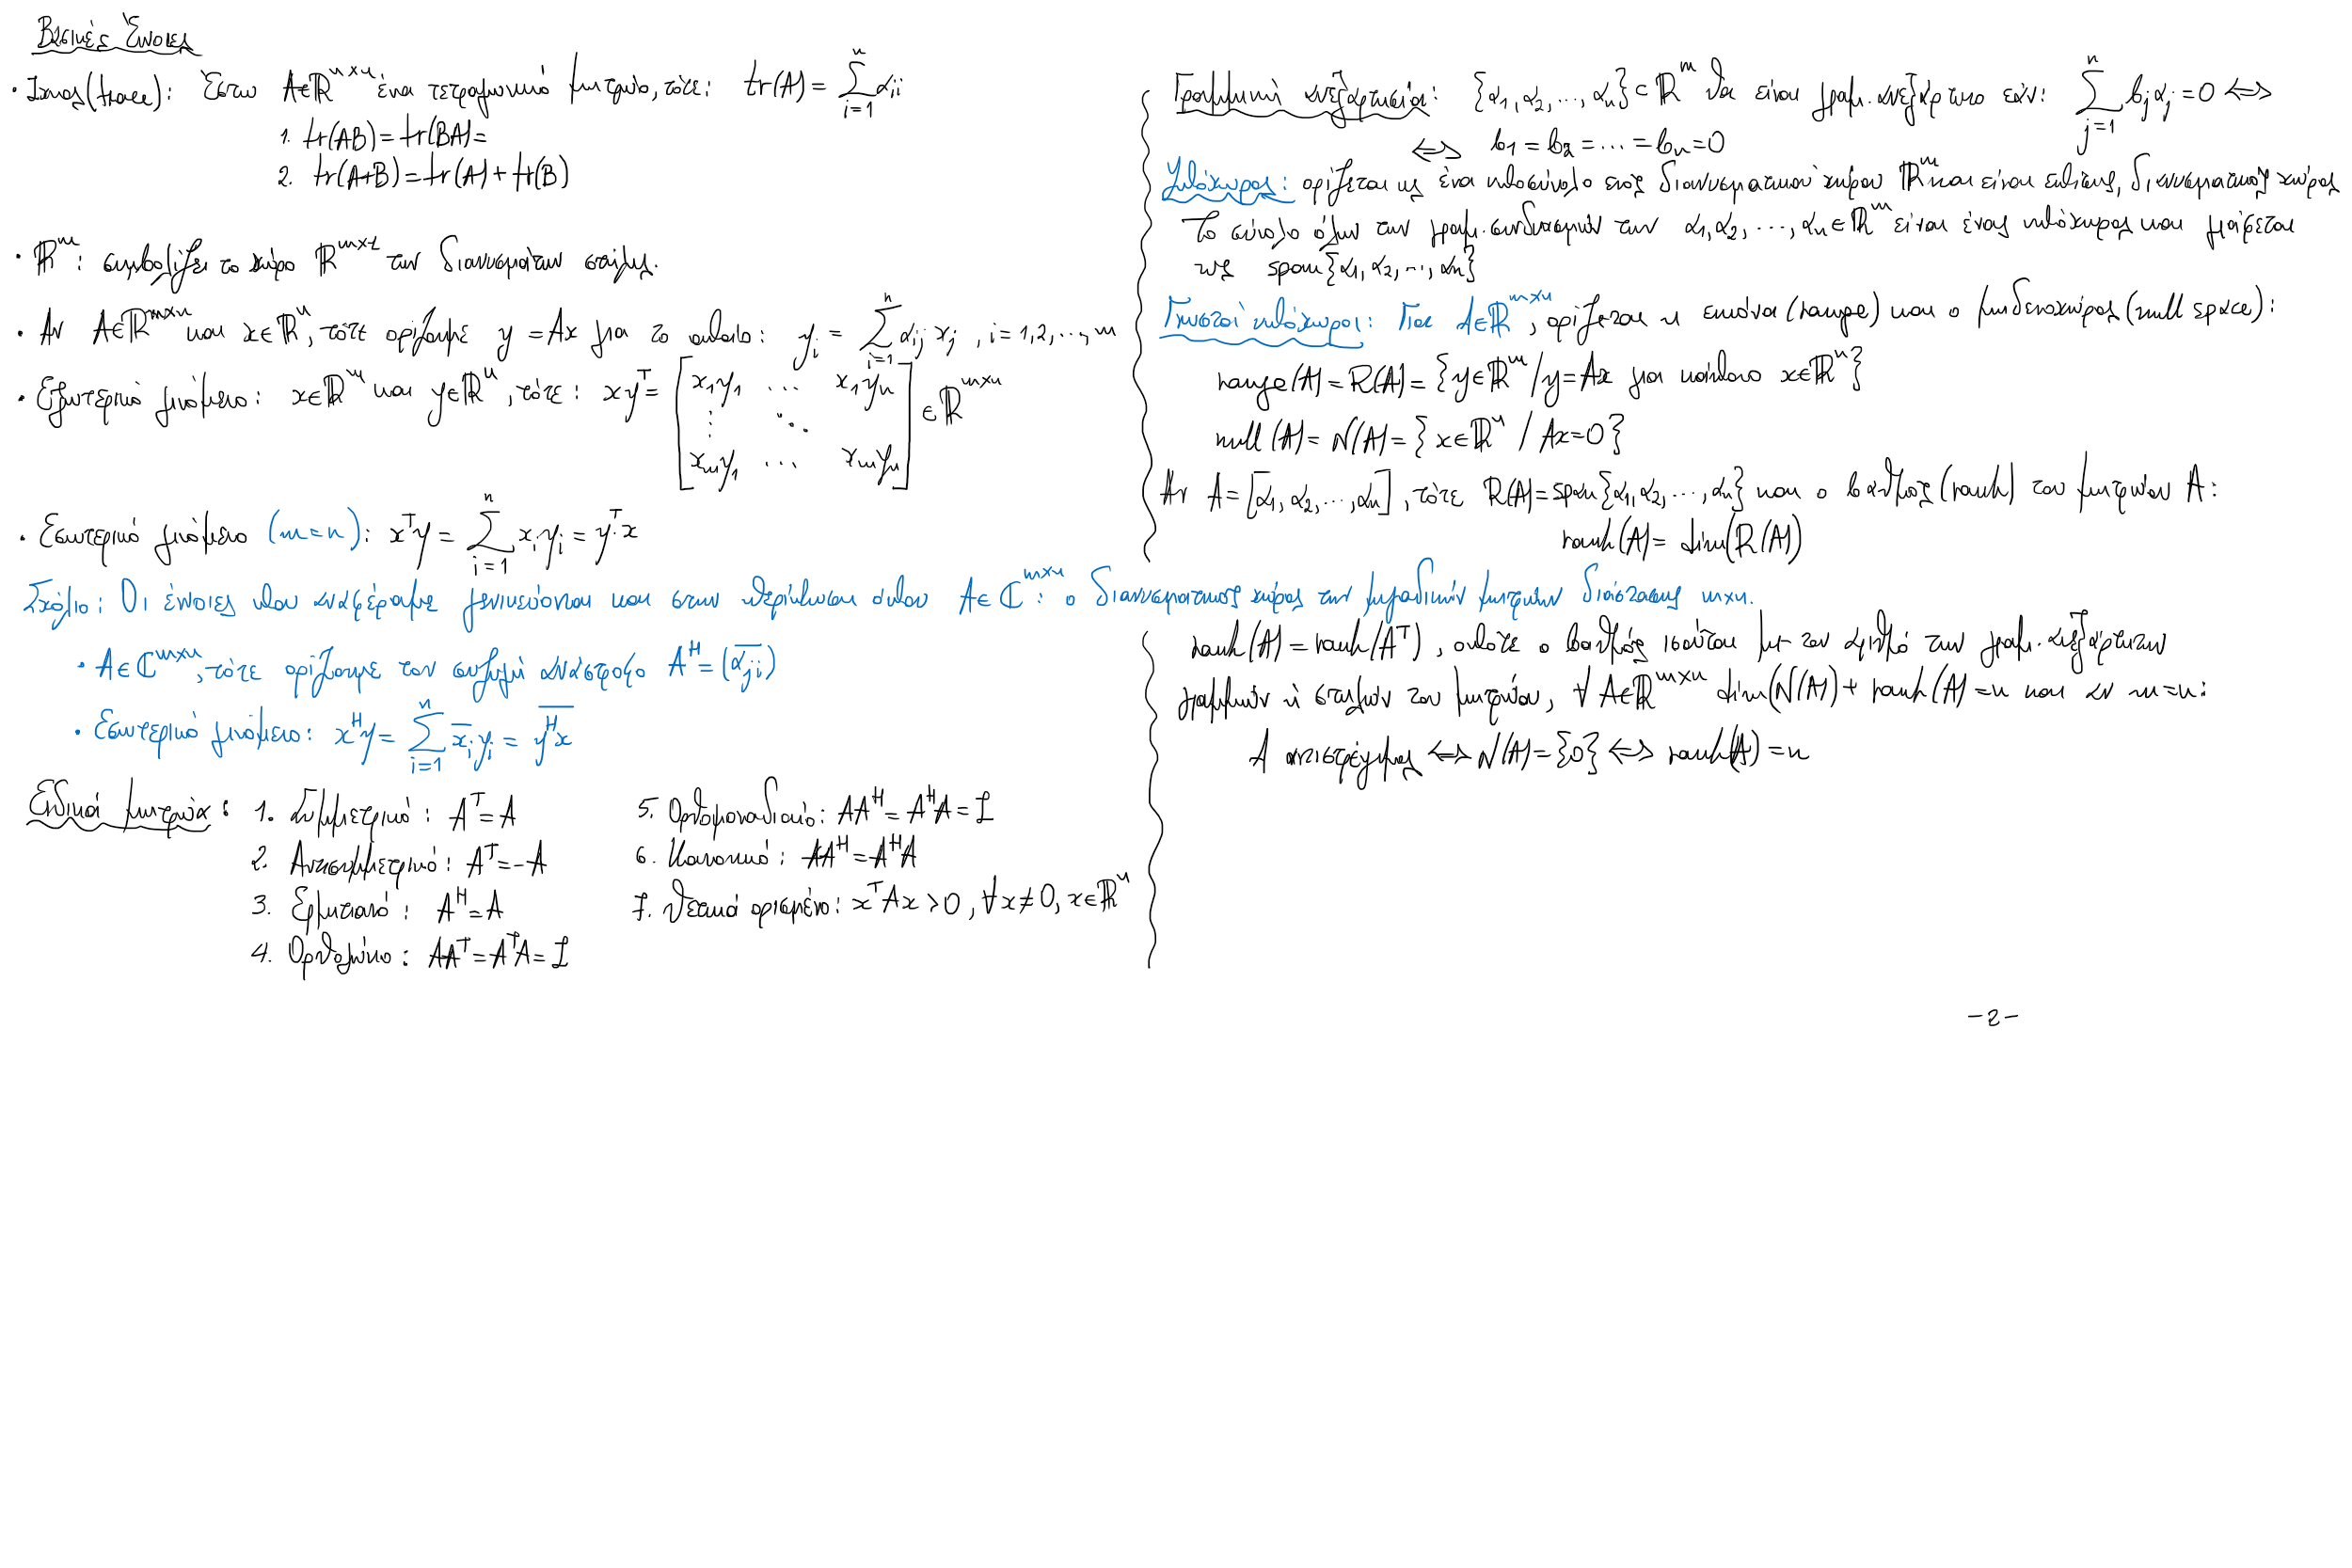 Βασικές Έννοιες
• Ίχνος (trace): Έστω A∈ℝⁿˣⁿ ένα τετραγωνικό μητρώο, τότε: tr(A) = Σ_{i=1}^{n} α_ii
1. tr(AB) = tr(BA) =
2. tr(A+B) = tr(A) + tr(B)
• ℝᵐ: συμβολίζει το χώρο ℝᵐˣ¹ των διανυσμάτων στήλης.
• Αν A∈ℝᵐˣⁿ και x∈ℝⁿ, τότε ορίζουμε y = Ax για το οποίο: y_i = Σ_{i=1}^{n} α_ij x_j , i = 1,2,...,m
• Εξωτερικό γινόμενο: x∈ℝᵐ και y∈ℝⁿ, τότε: xyᵀ = [x₁y₁ ... x₁yₙ ⋮ ⋱ xₘy₁ ... xₘyₙ] ∈ ℝᵐˣⁿ
• Εσωτερικό γινόμενο (m=n): xᵀy = Σ_{i=1}^{n} x_i y_i = yᵀ·x
Σχόλιο: Οι έννοιες που αναφέραμε γενικεύονται και στην περίπτωση όπου A∈ℂᵐˣⁿ: ο διανυσματικός χώρος των μιγαδικών μητρώων διάστασης m×n.
• A∈ℂᵐˣⁿ, τότε ορίζουμε τον συζυγή ανάστροφο Aᴴ = (α̅_ji)
• Εσωτερικό γινόμενο: xᴴy = Σ_{i=1}^{n} x̅_i y_i = \overline{yᴴx}
Ειδικά μητρώα: 1. Συμμετρικό: Aᵀ = A
2. Αντισυμμετρικό: Aᵀ = -A
3. Ερμιτιανό: Aᴴ = A
4. Ορθογώνιο: AAᵀ = AᵀA = I
5. Ορθομοναδιαίο: AAᴴ = AᴴA = I
6. Κανονικό: AAᴴ = AᴴA
7. Θετικά ορισμένο: xᵀAx > 0, ∀x≠0, x∈ℝⁿ
Γραμμική ανεξαρτησία: {α₁, α₂, ..., αₙ} ⊂ ℝᵐ θα είναι γραμ. ανεξάρτητο εάν: Σ_{j=1}^{n} b_j α_j = 0 ⇔
⇔ b₁ = b₂ = ... = bₙ = 0
Υπόχωρος: ορίζεται ως ένα υποσύνολο ενός διανυσματικού χώρου ℝᵐ και είναι επίσης, διανυσματικός χώρος
Το σύνολο όλων των γραμ. συνδυασμών των α₁, α₂, ..., αₙ ∈ ℝᵐ είναι ένας υπόχωρος και γράφεται
ως span{α₁, α₂, ..., αₙ}
Γνωστοί υπόχωροι: Για A∈ℝᵐˣⁿ, ορίζεται η εικόνα (range) και ο μηδενοχώρος (null space):
range(A) = R(A) = {y∈ℝᵐ / y=Ax για κάποιο x∈ℝⁿ}
null(A) = N(A) = {x∈ℝⁿ / Ax=0}
Αν A = [α₁, α₂, ..., αₙ], τότε R(A) = span{α₁, α₂, ..., αₙ} και ο βαθμός (rank) του μητρώου A:
rank(A) = dim(R(A))
rank(A) = rank(Aᵀ), οπότε ο βαθμός ισούται με τον αριθμό των γραμ. ανεξάρτητων
γραμμών ή στηλών του μητρώου, ∀ A∈ℝᵐˣⁿ dim(N(A)) + rank(A) = n και αν m=n:
A αντιστρέψιμος ⇔ N(A) = {0} ⇔ rank(A) = n
-2-